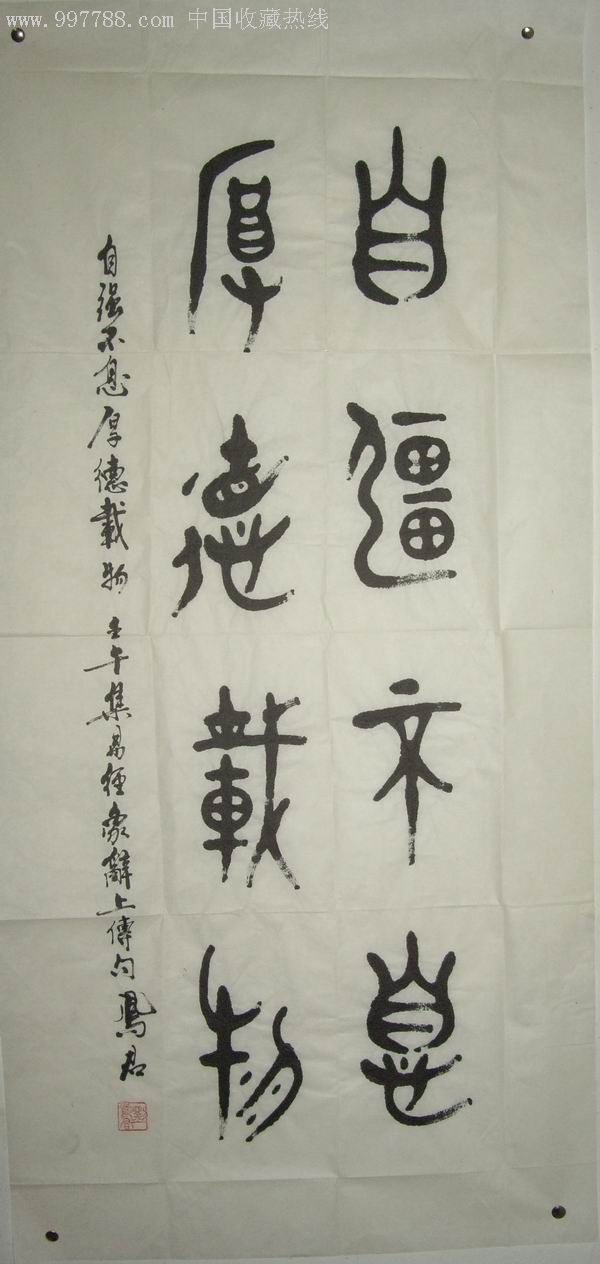 www.997788.com 中国收藏热线
自彊不息
厚德載物
自强不息厚德載物 壬午集易經象辭上傳句 鳳君